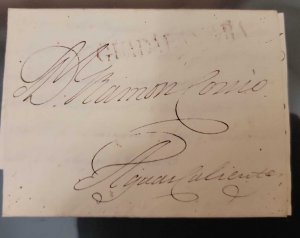 GUADALAXARA
D. Ramon
Aguascalientes